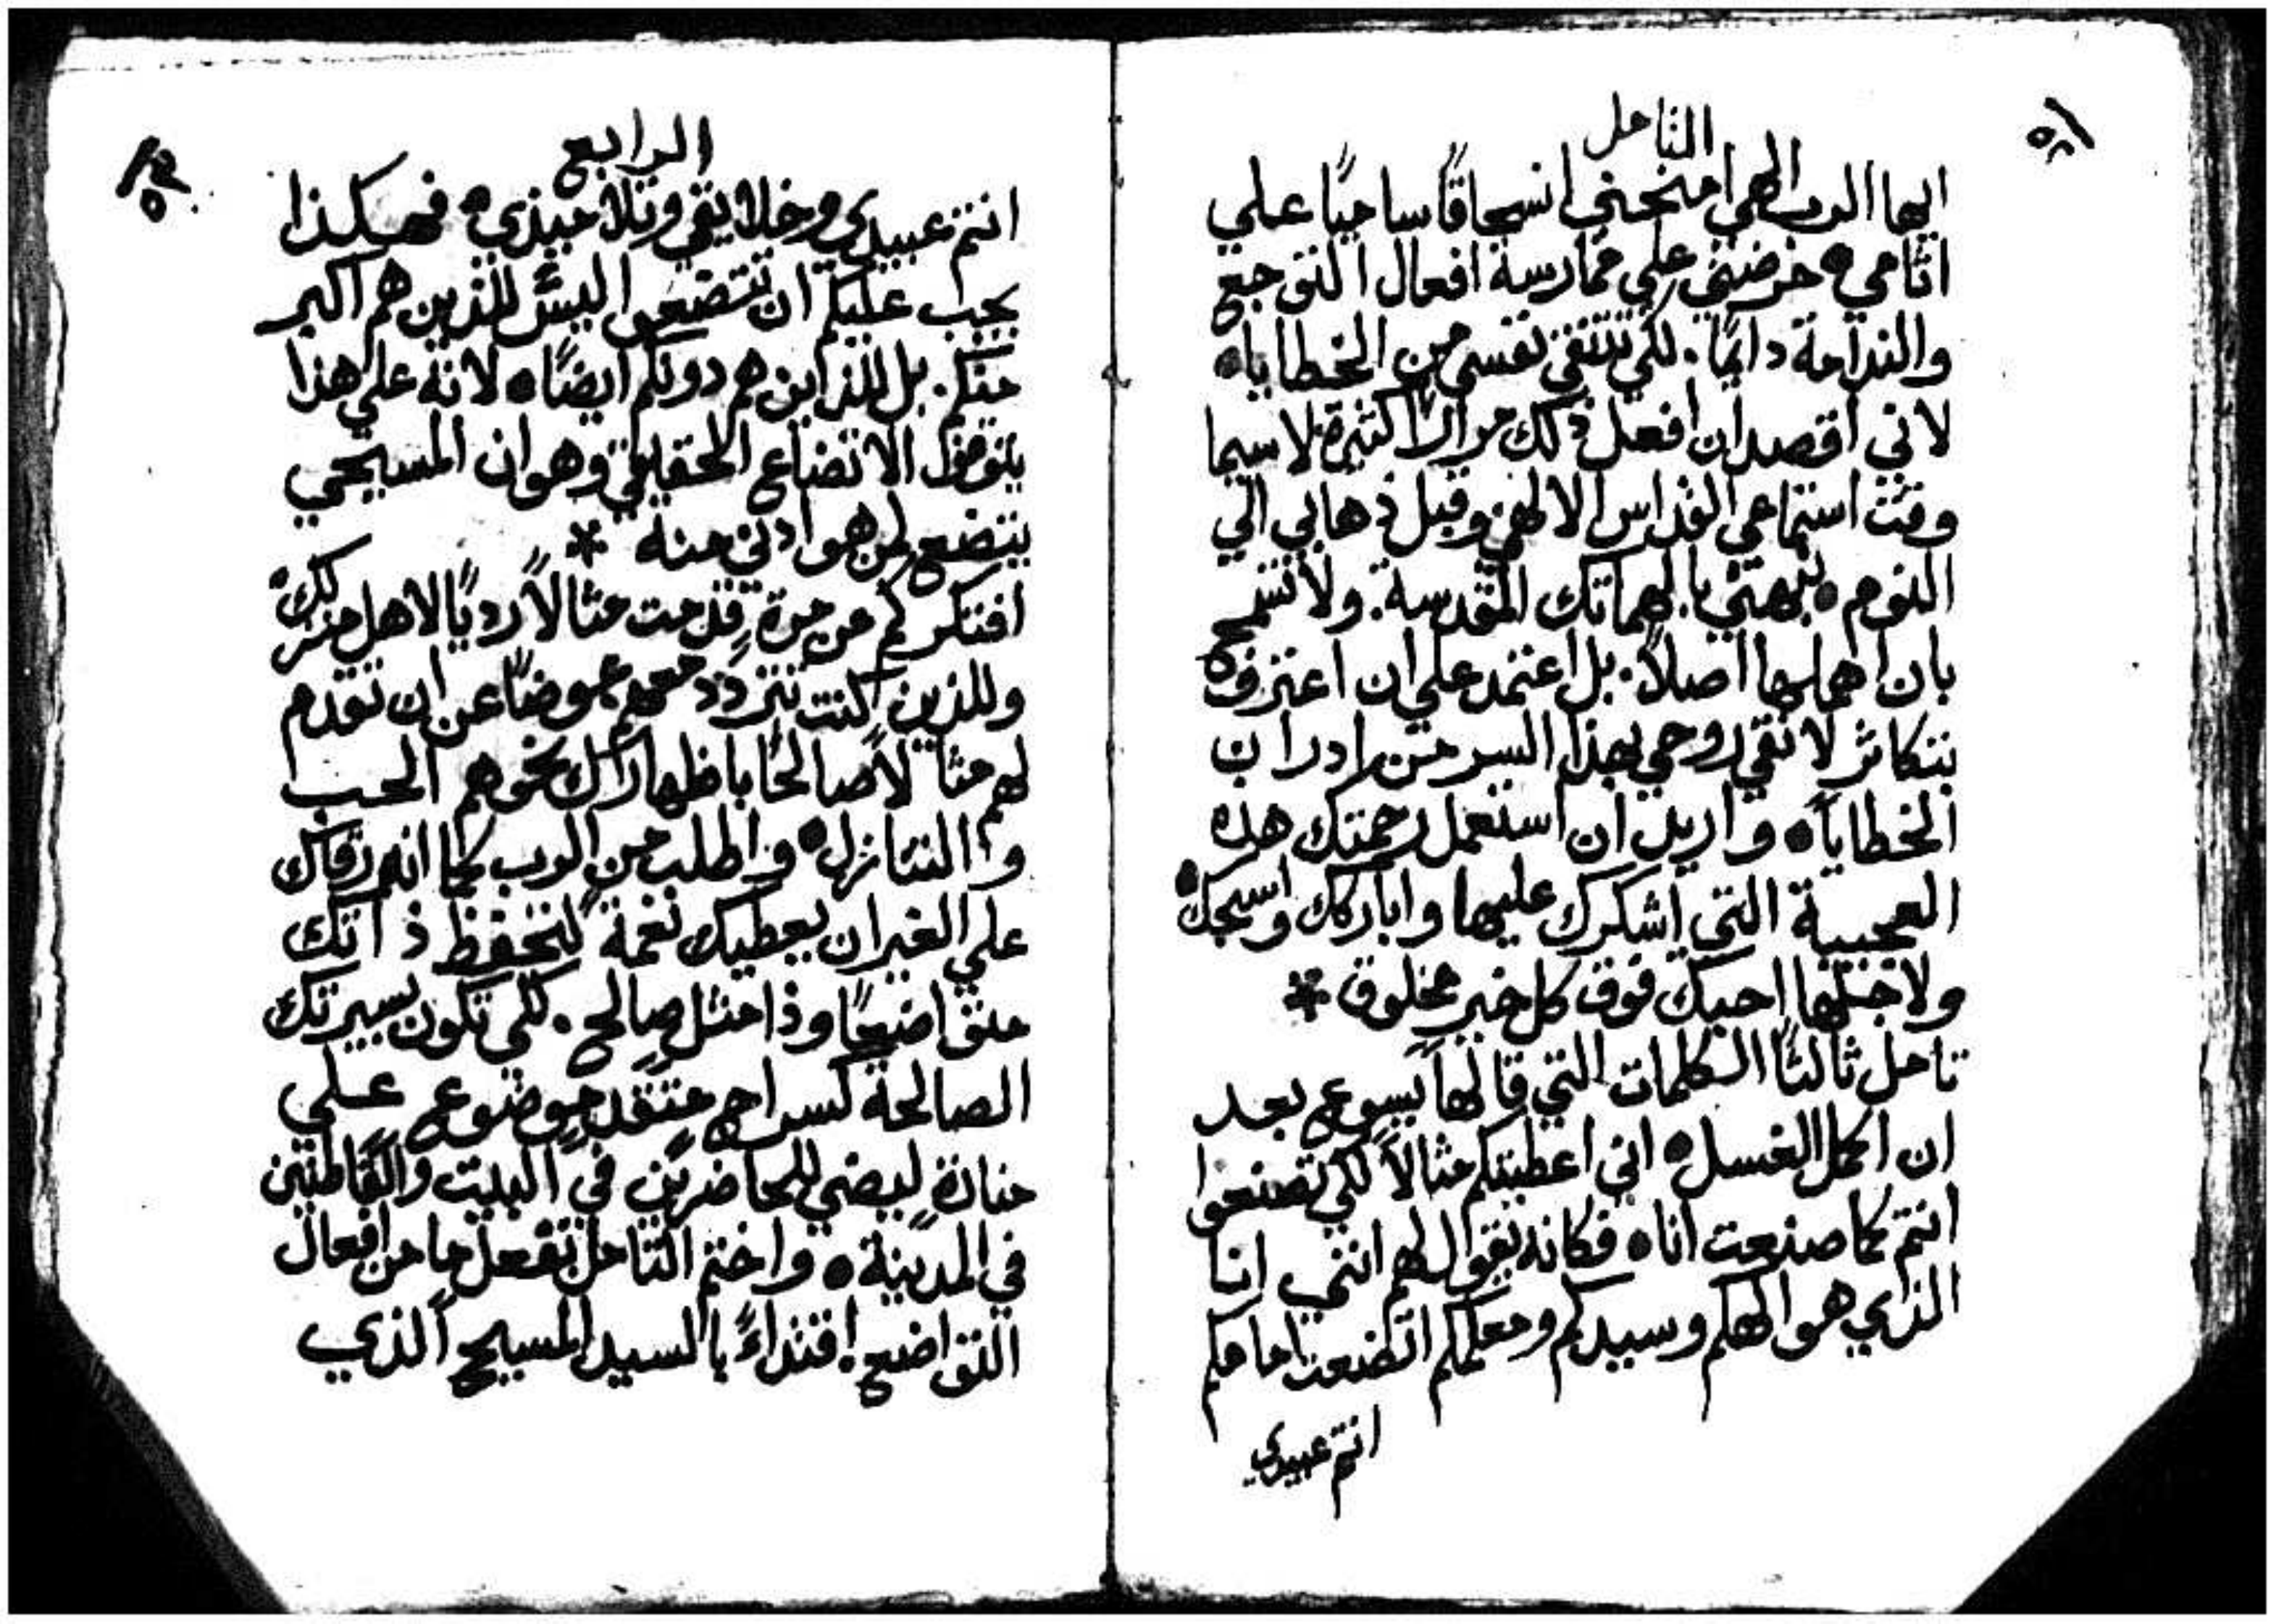 التامل
ايها الرب الهي امنحني انسحاقًا ساميًا علي
اثامي • حرضني علي ممارسة افعال التوجع
والندامة دايمًا. لكي تتنقي نفسي من الخطايا •
لاني اقصد ان افعل ذلك مرارًا كثيرة لاسيما
وقت استماعي القداس الالهي وقبل ذهابي الي
النوم • نبهني بالهاماتك المقدسة. ولا تسمح
بان اهملها اصلاً. بل اعتمد علي ان اعترف •
بتكاثر لانقي روحي بهذا السر من ادران
الخطايا • واريد ان استعمل رحمتك هذه
العجيبة التي اشكرك عليها واباركك واسبحك •
ولاجلها احبك فوق كل خير مخلوق *
تامل ثالثًا الكلمات التي قالها يسوع بعد
ان اكمل الغسل • اني اعطيتكم مثالاً لكي تصنعوا
انتم كما صنعت انا • فكانه يقول لهم انني انا
الذي هو الهكم وسيدكم ومعلمكم اتضعت امامكم
انتم عبيدي
الرابع
انتم عبيدي وخلايقي وتلاميذي • فهكذا
يجب عليكم ان تتضعوا ليس للذين هم اكبر
منكم. بل للذين هم دونكم ايضًا • لانه علي هذا
يتوقف الاتضاع الحقيقي وهو ان المسيحي
يتضع لمن هو ادني منه *
افتكر كم من مرة قدمت مثالاً رديًا لاهل منزلك •
وللذين كنت تتردد معهم عوضًا عن ان تقدم
لهم مثالاً صالحًا باظهارك نحوهم الحب
والتنازل • واطلب من الرب كما انه رقاك
علي الغير ان يعطيك نعمة لتحفظ ذاتك
متواضعًا وذا مثل صالح. لكي تكون سيرتك
الصالحة كسراج متقد موضوع علي
منارة ليضي للحاضرين في البيت والقاطنين
في المدينة • واختم التامل بفعل ما من افعال
التواضع. اقتداءً بالسيد المسيح الذي